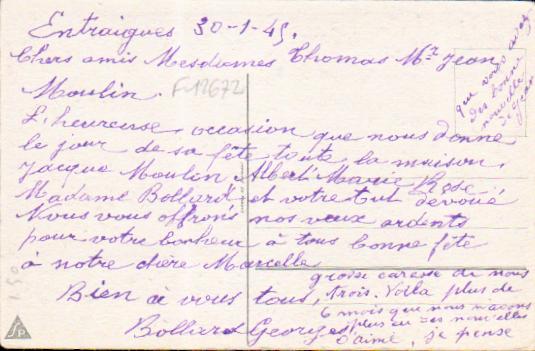 Entraigues 30-1-45.
Chers amis Mesdames Thomas Mr Jean
Moulin.
F-12672
L'heureuse occasion que nous donne
le jour de sa fête toute la maison,
Jacque Moulin Albert Marie Rose
Madame Bollard et votre tut dévoué
Nous vous offrons nos vœux ardents
pour votre bonheur à tous bonne fête
à notre chère Marcelle
Bien à vous tous,
Bollard Georges
grosse caresse de nous
trois. Voila plus de
6 mois que nous n'avons
plus eu des nouvelles
d'aimé, je pense
que vous avez
des bonne
nouvelle
de Jean